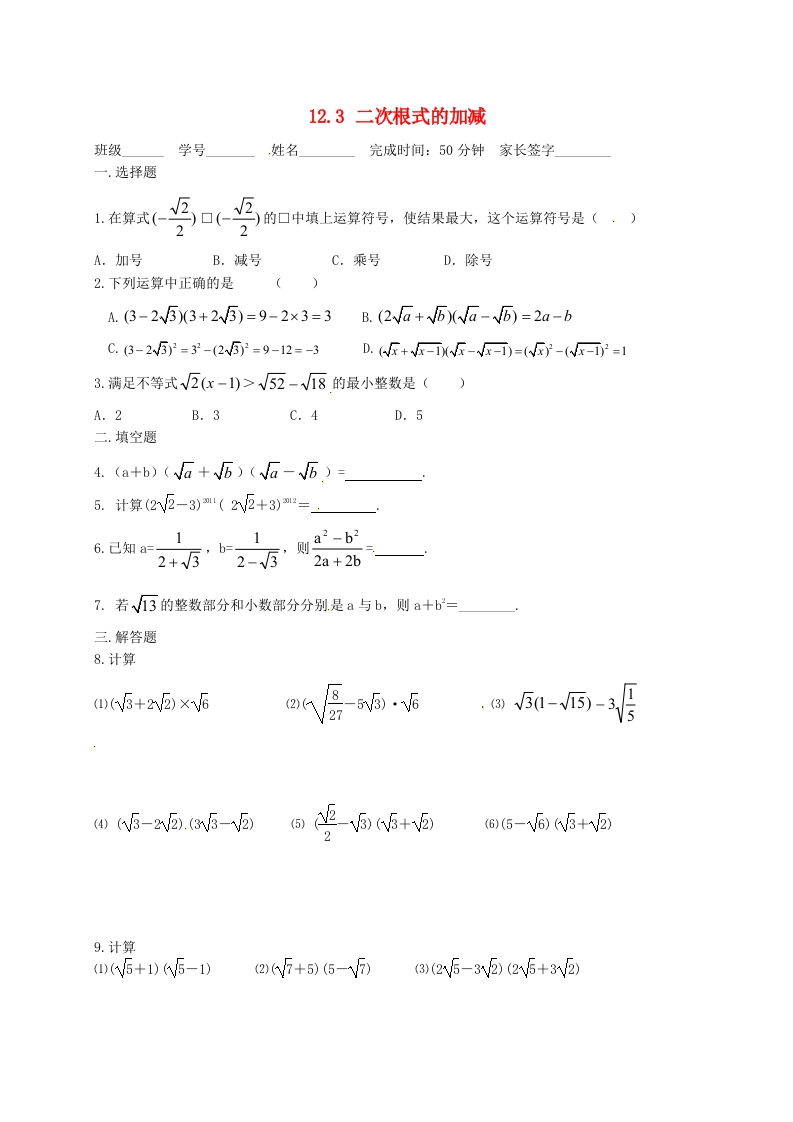 12.3 二次根式的加减
班级______ 学号_______ 姓名________ 完成时间：50 分钟 家长签字________
一.选择题
1.在算式(−√2/2)□(−√2/2)的□中填上运算符号，使结果最大，这个运算符号是（ ）
A．加号 B．减号 C．乘号 D．除号
2.下列运算中正确的是 （ ）
A.(3−2√3)(3+2√3)=9−2×3=3 B.(2√a+√b)(√a−√b)=2a−b
C.(3−2√3)²=3²−(2√3)²=9−12=−3 D.(√x+√x−1)(√x−√x−1)=(√x)²−(√x−1)²=1
3.满足不等式√2(x−1)＞√52−√18的最小整数是（ ）
A．2 B．3 C．4 D．5
二.填空题
4.（a＋b）（√a＋√b）（√a－√b）=___________.
5. 计算(2√2－3)²⁰¹¹( 2√2＋3)²⁰¹²＝_________.
6.已知 a=1/(2+√3)，b=1/(2−√3)，则(a²−b²)/(2a+2b)=_______.
7. 若√13的整数部分和小数部分分别是 a 与 b，则 a＋b²＝________.
三.解答题
8.计算
⑴(√3＋2√2)×√6 ⑵(√(8/27)－5√3)·√6 ⑶ √3(1−√15)−3√(1/5)
⑷ (√3－2√2)(3√3－√2) ⑸ (√2/2－√3)(√3＋√2) ⑹(5－√6)(√3＋√2)
9.计算
⑴(√5＋1)(√5－1) ⑵(√7＋5)(5－√7) ⑶(2√5－3√2)(2√5＋3√2)